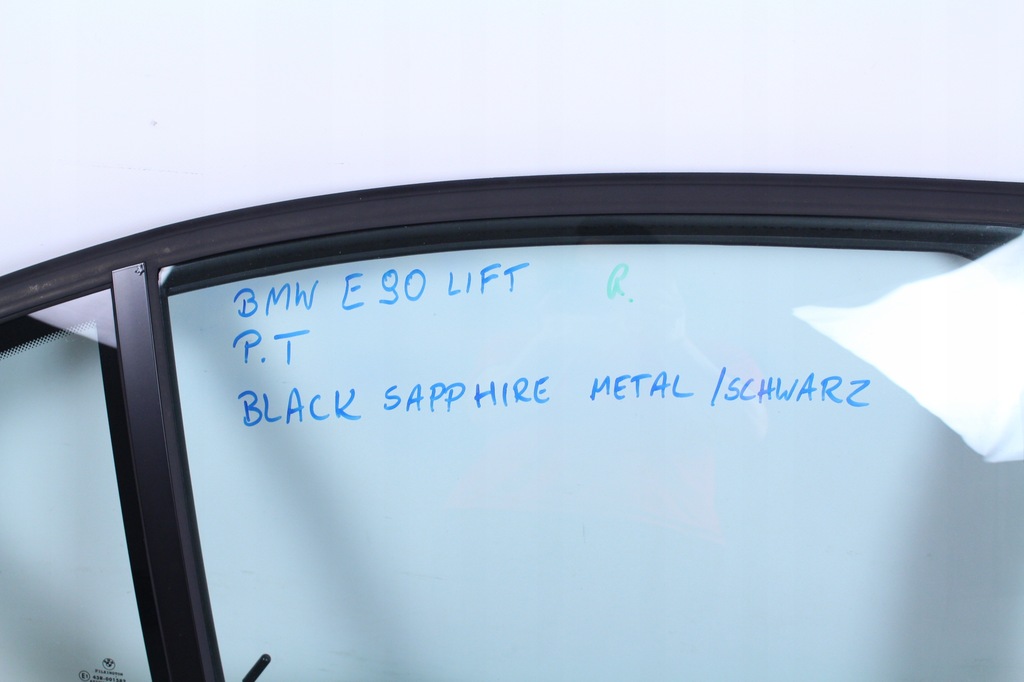 BMW E90 LIFT R.
P.T
BLACK SAPPHIRE METAL /SCHWARZ
PILKINGTON